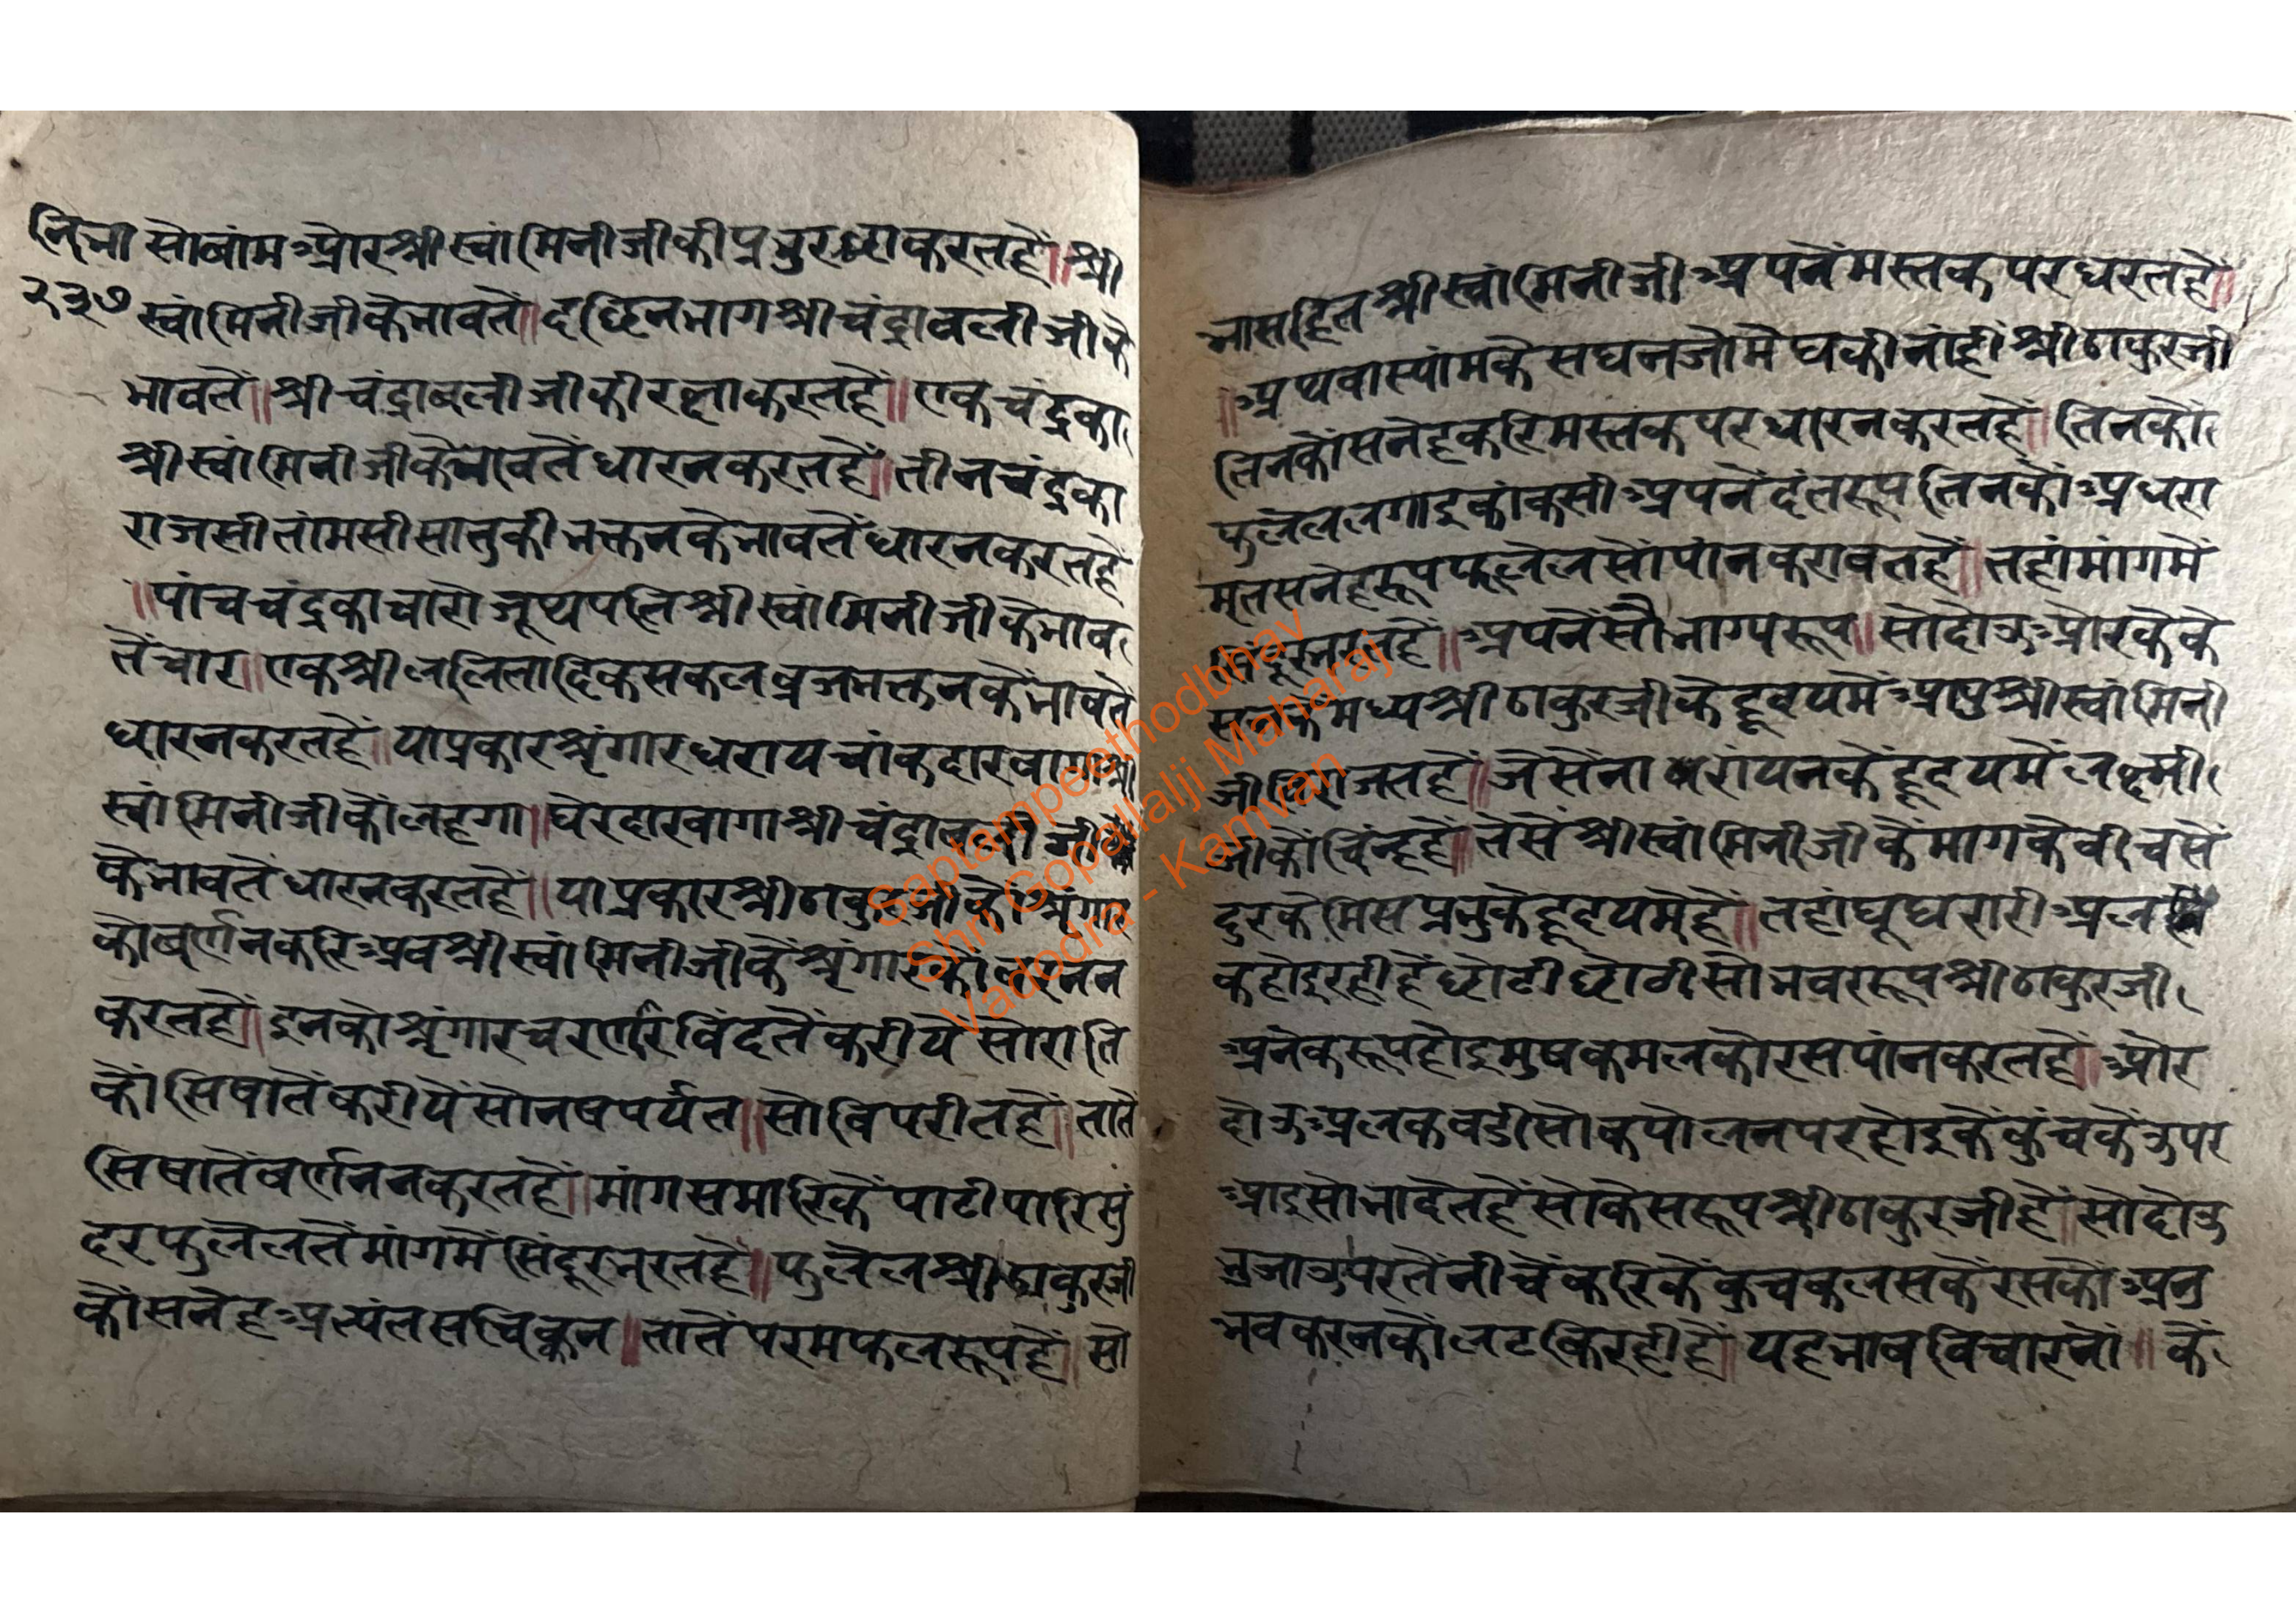 नि.भा सोबांम और श्री स्वांमिनीजी की प्रभु रक्षा करत हैं॥ श्री
२३७ स्वांमिनीजी के भावतें॥ दछिन भाग श्री चंद्रावली जी के
भावतें॥ श्री चंद्राबली जी की रक्षा करत हैं॥ एक चंद्रका
श्री स्वांमिनीजी के भावतें धारन करत हैं॥ तीन चंद्रका
राजसी तांमसी सातुकी भक्तन के भावतें धारन करत हैं
॥पांच चंद्रका चारो जूथपति श्री स्वांमिनीजी के भाव
तें चार॥ एक श्री ललितादिक सकल व्रजभक्तन कें भावतें
धारन करत हैं॥ या प्रकार श्रृंगार धराय चाकदार बागा श्री
स्वांमिनीजी कों लहगा॥ घेरदार बागा श्री चंद्रावली जी
के भावतें धारन करत हैं॥ या प्रकार श्री ठाकुरजी कौं श्रृंगार
को बर्णन करि अब श्री स्वांमिनीजी कें श्रृंगार को वरनन
करत हैं॥ इनको श्रृंगार चरर्णारविंद तें करीये सो राति
कों सिषातें करीयें सो नष पर्यंत॥ सो विपरीत हैं॥ तातें
सिषातें बर्णनन करत हैं॥ मांग समारिकें पाटी पारि सुं
दर फुलेल तें मांग में सिंदूर भरत हैं॥ फुलेल श्री ठाकुरजी
कों सनेह अत्यंत सचिक्कन॥ तातें परम फल रूप हैं॥ सो
भा सहित श्री स्वांमिनीजी अपनें मस्तक पर धरत हैं॥
॥अथवा स्यांम के सघन जो मेघ की नांही श्री ठाकुरजी
तिनकों सनेह करि मस्तक पर धारन करत हैं॥ तिनकों
फुलेल लगाइ कांकसी अपनें दंत रूप तिनकों अधरा
मृत सनेह रूप फुलेल सों पांन करावत हैं॥ तहां मांग में
सिंदूर भरत हैं॥ अपनें सौभाग्य रूप॥ सो दोउ और के के
सन के मध्य श्री ठाकुरजी के हृदय में आपु श्री स्वांमिनी
जी बिराजत हैं॥ जेसें नारांयन कें हृदय में लक्ष्मी
जी कों चिंन्ह हैं॥ तेसें श्री स्वांमिनीजी कें माग के वीच सें
दुर के मिस प्रभु के हृदय में हैं॥ तहां घूघरारी अल
क होइ रही हैं छोटी छोटी सो भवर रूप श्री ठाकुरजी
अनेक रूप होइ मुष कमल को रस पांन करत हैं॥ और
दोउ अलक वडी सो कपोलन पर होइ कें कुंच कें उपर
आइ सोभा देत हैं सो के सरूप श्री ठाकुरजी हैं॥ सो दोउ
भुजा उपर तें नीचें करिकें कुच कलस कें रस कों अनु
भव करन कों लटकि रही हैं॥ यह भाव विचारनों॥ कें